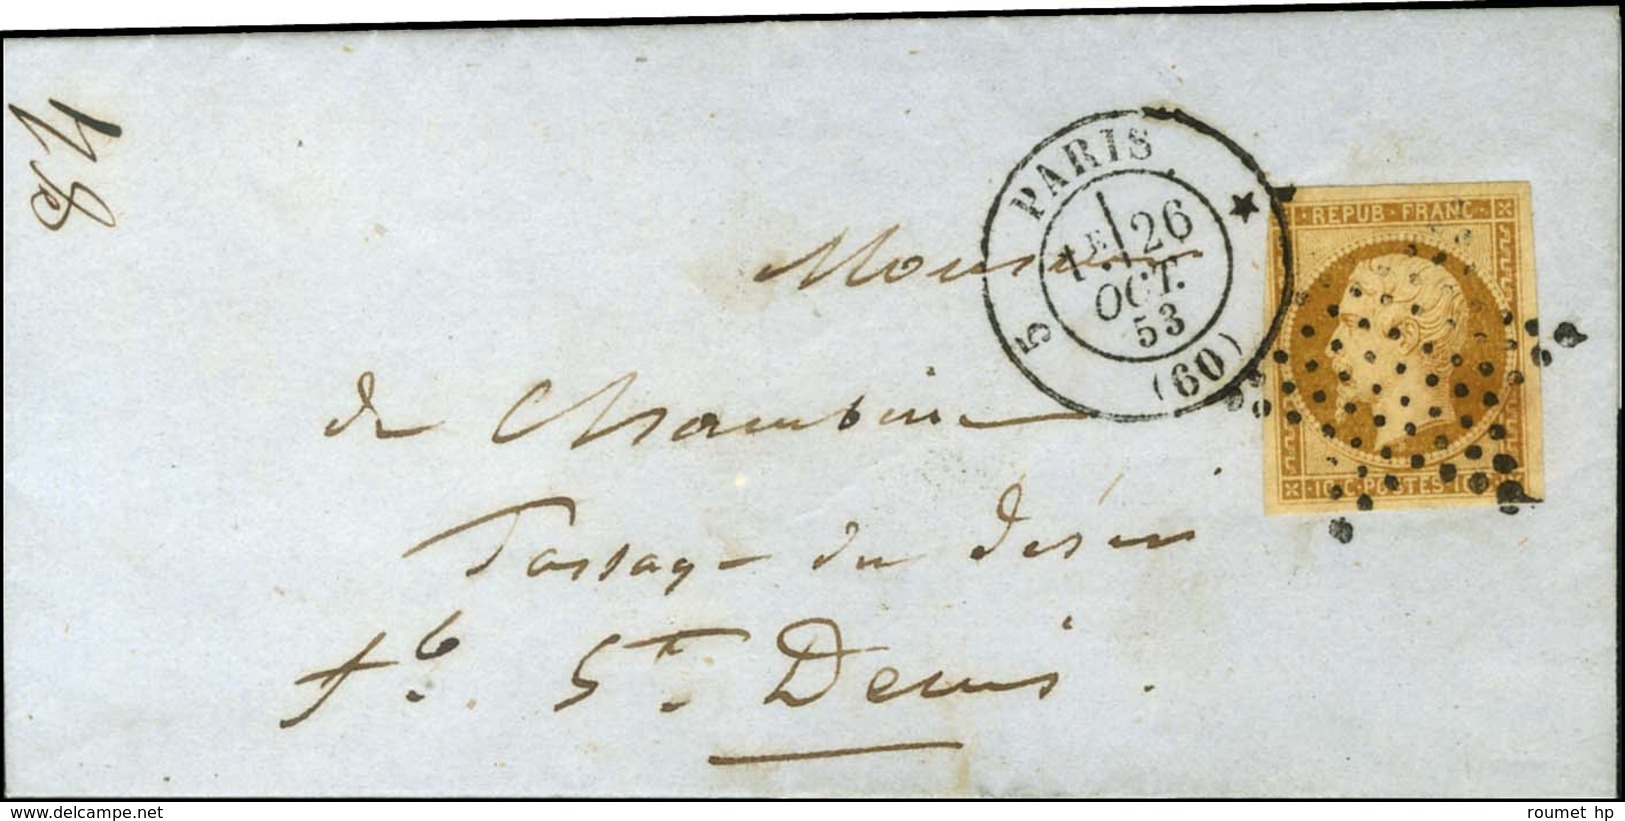 PARIS
5
1E 26
OCT.
53
(60)
REPUB · FRANC ·
10 C · POSTES · 10
Monsieur
de
Passage du désir
fb. St. Denis.
www.delcampe.net
roumet hp